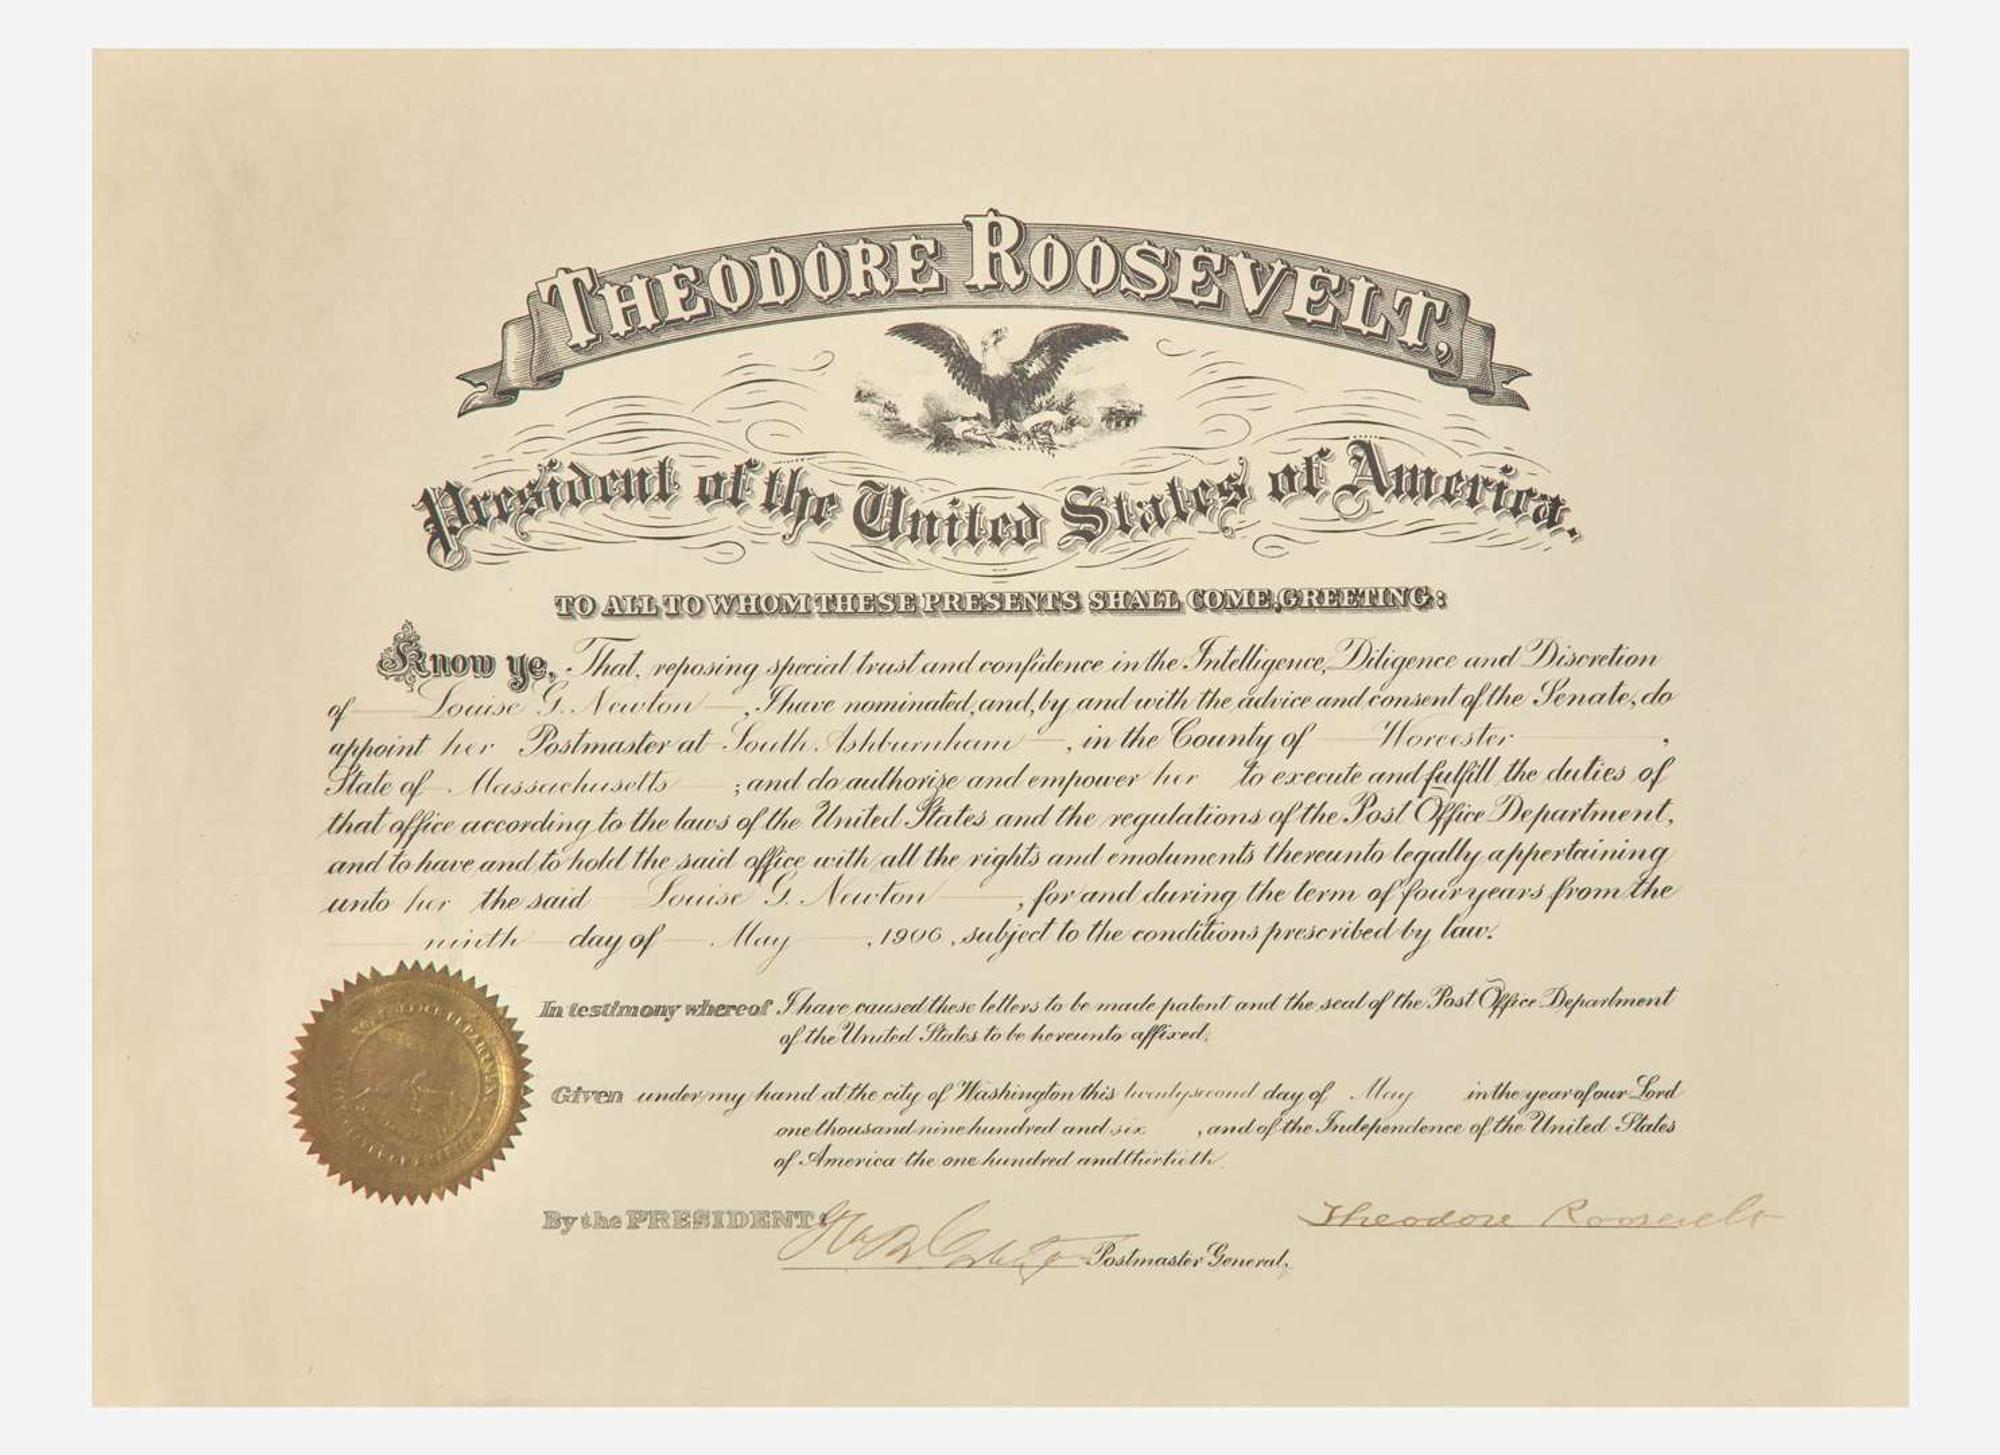 THEODORE ROOSEVELT,
President of the United States of America.
TO ALL TO WHOM THESE PRESENTS SHALL COME, GREETING:
Know ye, That, reposing special trust and confidence in the Intelligence, Diligence and Discretion
of Louise G. Newton, I have nominated, and, by and with the advice and consent of the Senate, do
appoint her Postmaster at South Ashburnham, in the County of Worcester,
State of Massachusetts; and do authorize and empower her to execute and fulfill the duties of
that office according to the laws of the United States and the regulations of the Post Office Department,
and to have and to hold the said office with all the rights and emoluments thereunto legally appertaining
unto her the said Louise G. Newton, for and during the term of four years from the
ninth day of May, 1906, subject to the conditions prescribed by law.
In testimony whereof I have caused these letters to be made patent and the seal of the Post Office Department
of the United States to be hereunto affixed.
Given under my hand at the city of Washington this twenty second day of May in the year of our Lord
one thousand nine hundred and six, and of the Independence of the United States
of America the one hundred and thirtieth.
By the PRESIDENT:
Theodore Roosevelt
Postmaster General.